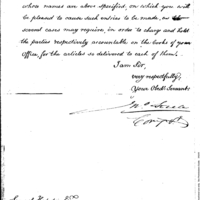 whose names are above specified, on which you will
be pleased to cause such entries to be made, as
several cases may require, in order to charge and hold
the parties respectively accountable on the books of your
Office, for the articles so delivered to each of them.
I am Sir,
very respectfully,
Your Obdt Servant
Compt